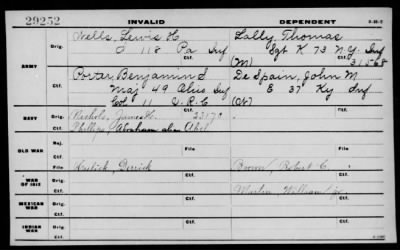 29252
INVALID
DEPENDENT
Wells, Lewis H
Lally, Thomas
ARMY
Orig.
118 Pa Inf
Ctf.
Sgt K 73 N.Y. Inf
(M) 31568
Orig.
Porter, Benjamin S
De Spain, John M
Maj 49 Ohio Inf
E 37 Ky Inf
Ctf.
Col 11 V.R.C
NAVY
Orig.
Nichols, James H. 23170
Ctf.
Ctf.
Phillips, Abraham alias Abel
OLD WAR
Inj.
Ctf.
File
File
WAR OF 1812
Derrick
Brown, Robert C.
Orig.
Ctf.
Martin, William Jr.
MEXICAN WAR
Orig.
Ctf.
INDIAN WAR
Orig.
Ctf.